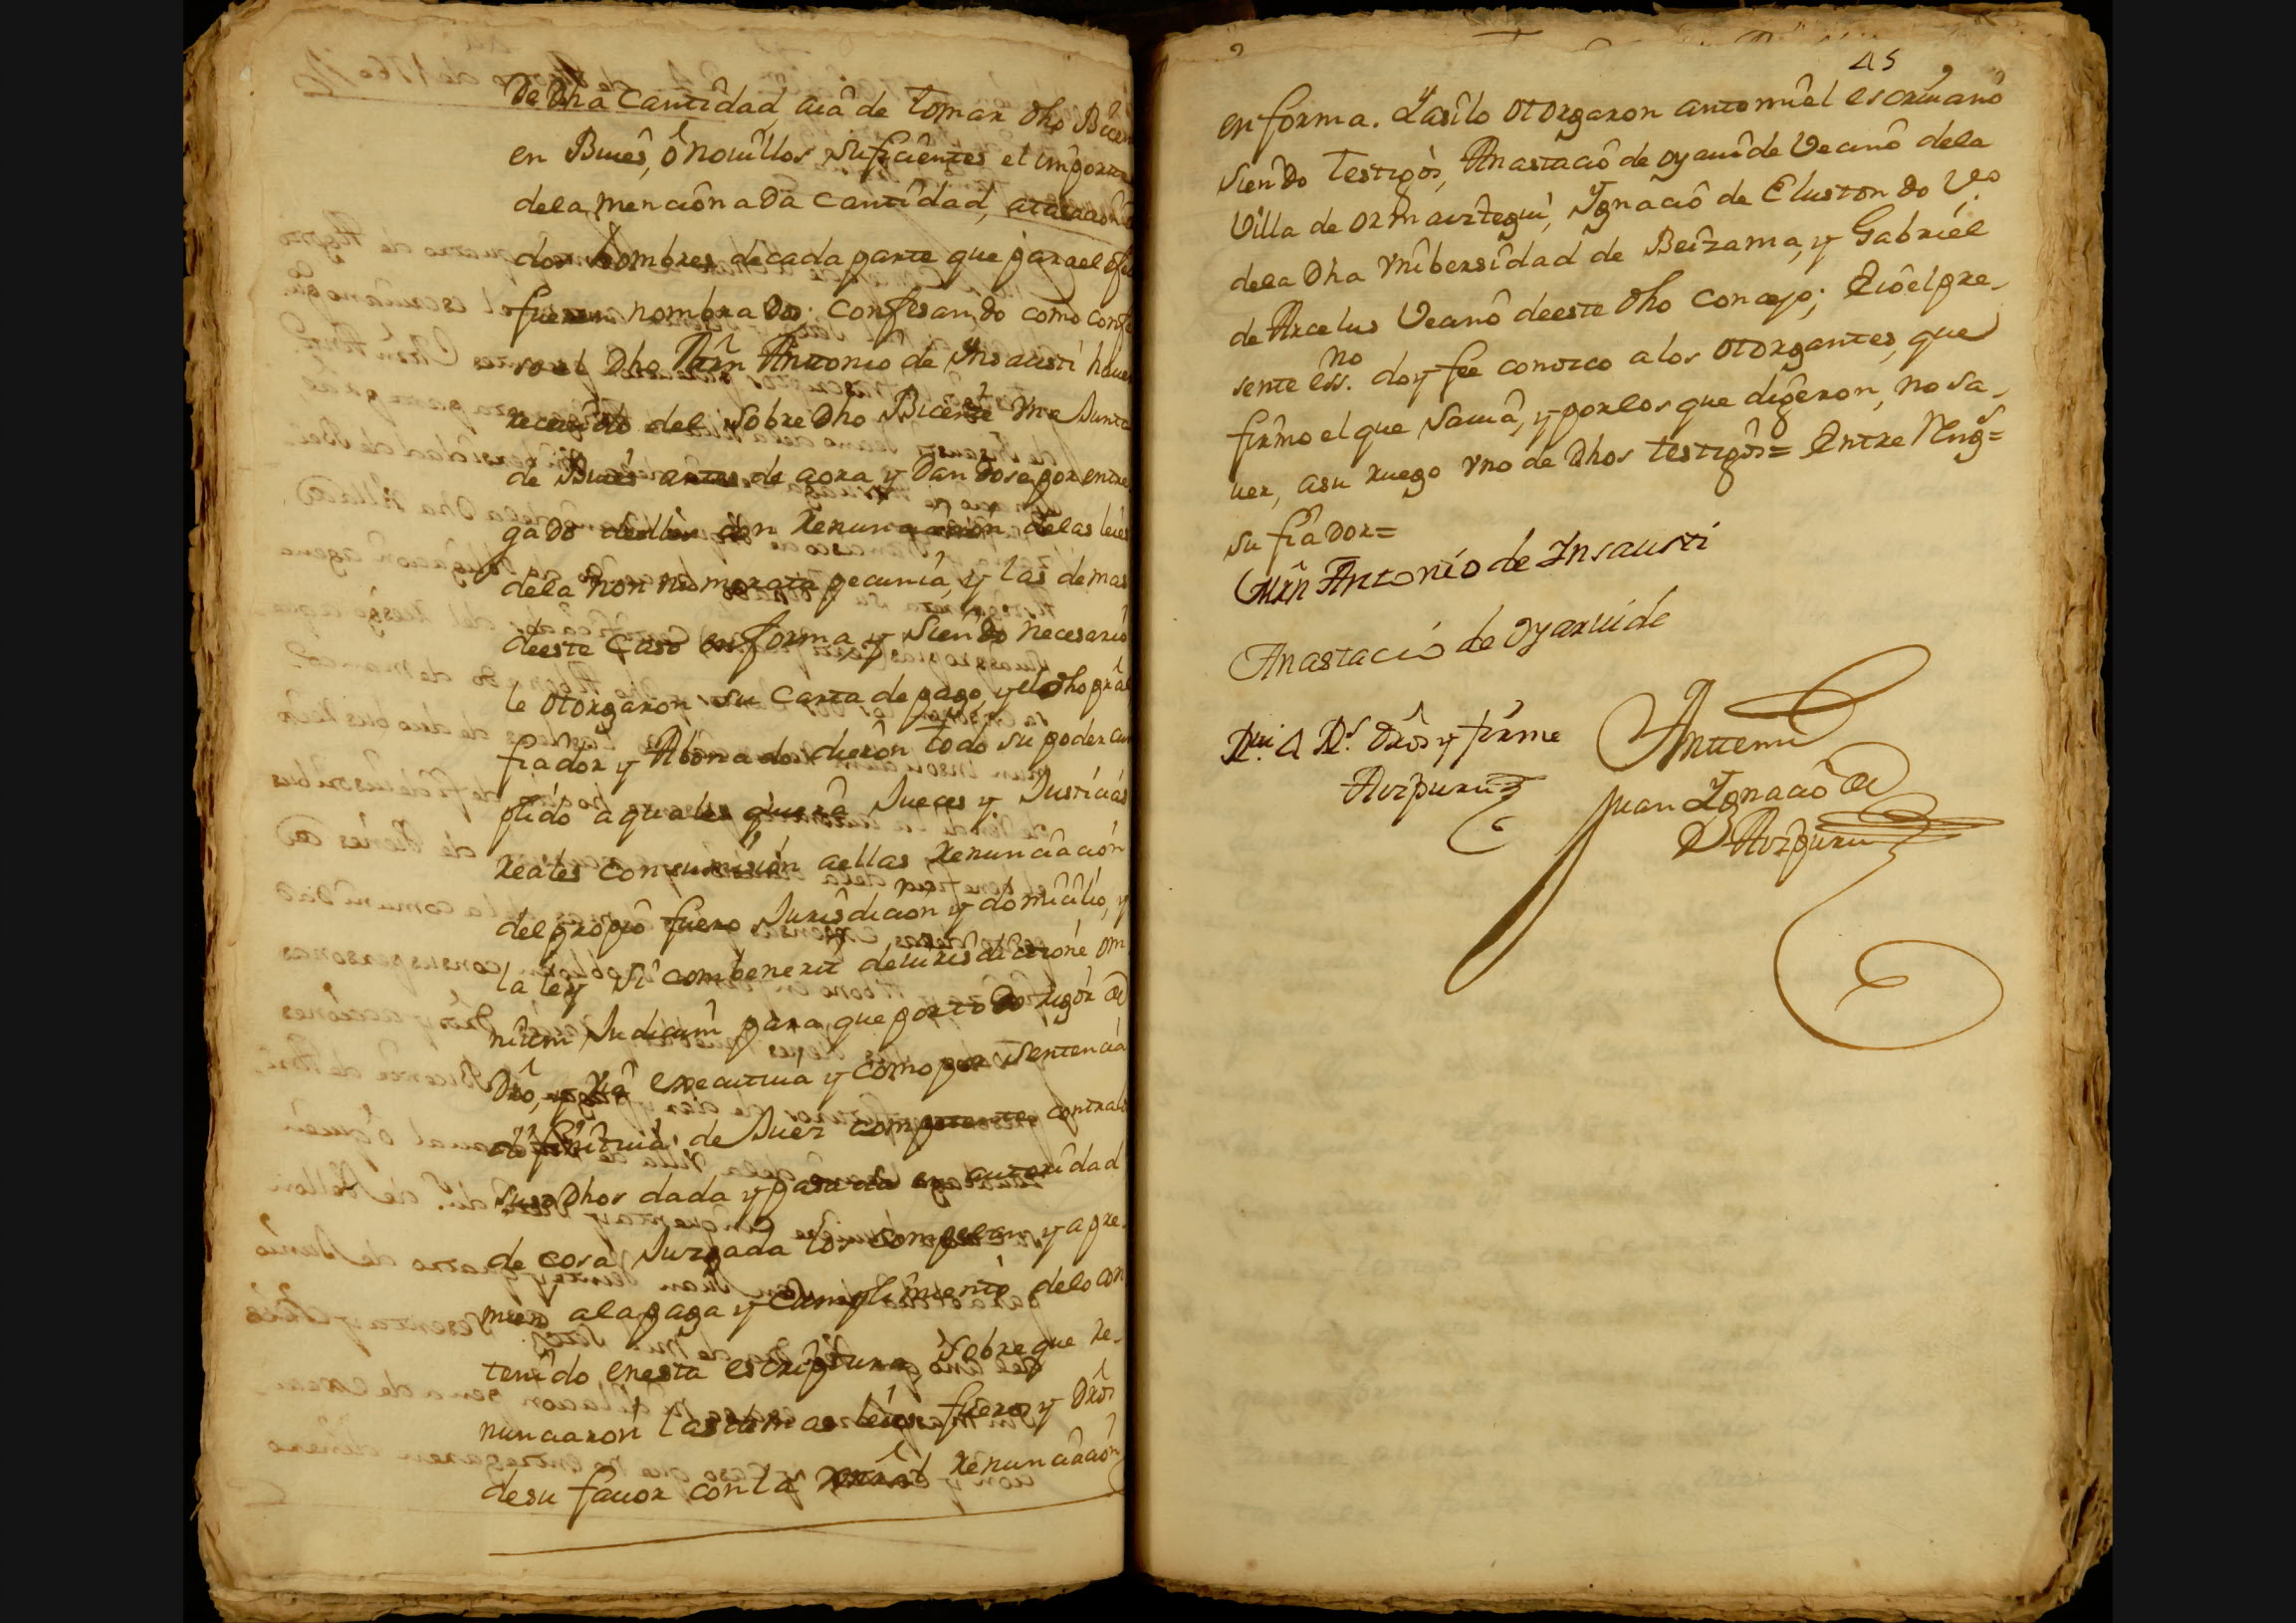 De Dha Cantidad, aia de tomar dho Bicen
en Buies, ô nouillos suficientes el importe
dela mencionada Cantidad, atasacion
dos hombres de cada parte que para el efe
fueren nombrados: Confesando como confe
so el Dho Mrn Antonio de Insausti hauer
receuido del sobre Dho Bicente vna Junta
de Buies antes de aora y dandose por entre
gado dellos con Renunciacion delas leies
dela non numerata pecunia, y las demas
deeste Caso en forma y siendo necesario
le otorgaron su Carta de pago, y el dho prâl
fiador y Abonador dieron todo su poder cum
plido a quales quiera Jueces y Justicias
Reales con sumision aellas Renunciacion
del propio fuero Jurisdicion y domicilio, y
la ley si combenerit de iurisdictione om
nium Judicum para que por todo rigor de
Dro, y via executiua y como por sentencia
difinitiua de Juez competente contra los
suso Dhos dada y pasada en autoridad
de cosa Juzgada los compelan y apre-
mien ala paga y Cumplimiento delo con
tenido enesta escriptura sobre que Re-
nunciaron las demas leies fueros y Dros
de su fauor con la xrâl renunciacion
45
en forma. Y asilo otorgaron ante mi el escriuano
siendo testigos, Anastacio de oyauide Vecino dela
Villa de ormaiztegui, Ygnacio de Elustondo Vº
dela Dha Vnibersidad de Beizama, y Gabriel
de Arcelus Vecino deeste dho Concejo; E io el pre-
sente essno. doy fee conozco a los otorgantes, que
firmo el que sauia, y por los que digeron, no sa-
uer, asu ruego vno de Dhos testigos= Entre Rengs=
su fiador=
Mrn Antonio de Insausti
Anastacio de oyaruide
Rui A Rs. Dros y firme
Aizpuru
Antemi
Juan Ygnacio de
Aizpuru